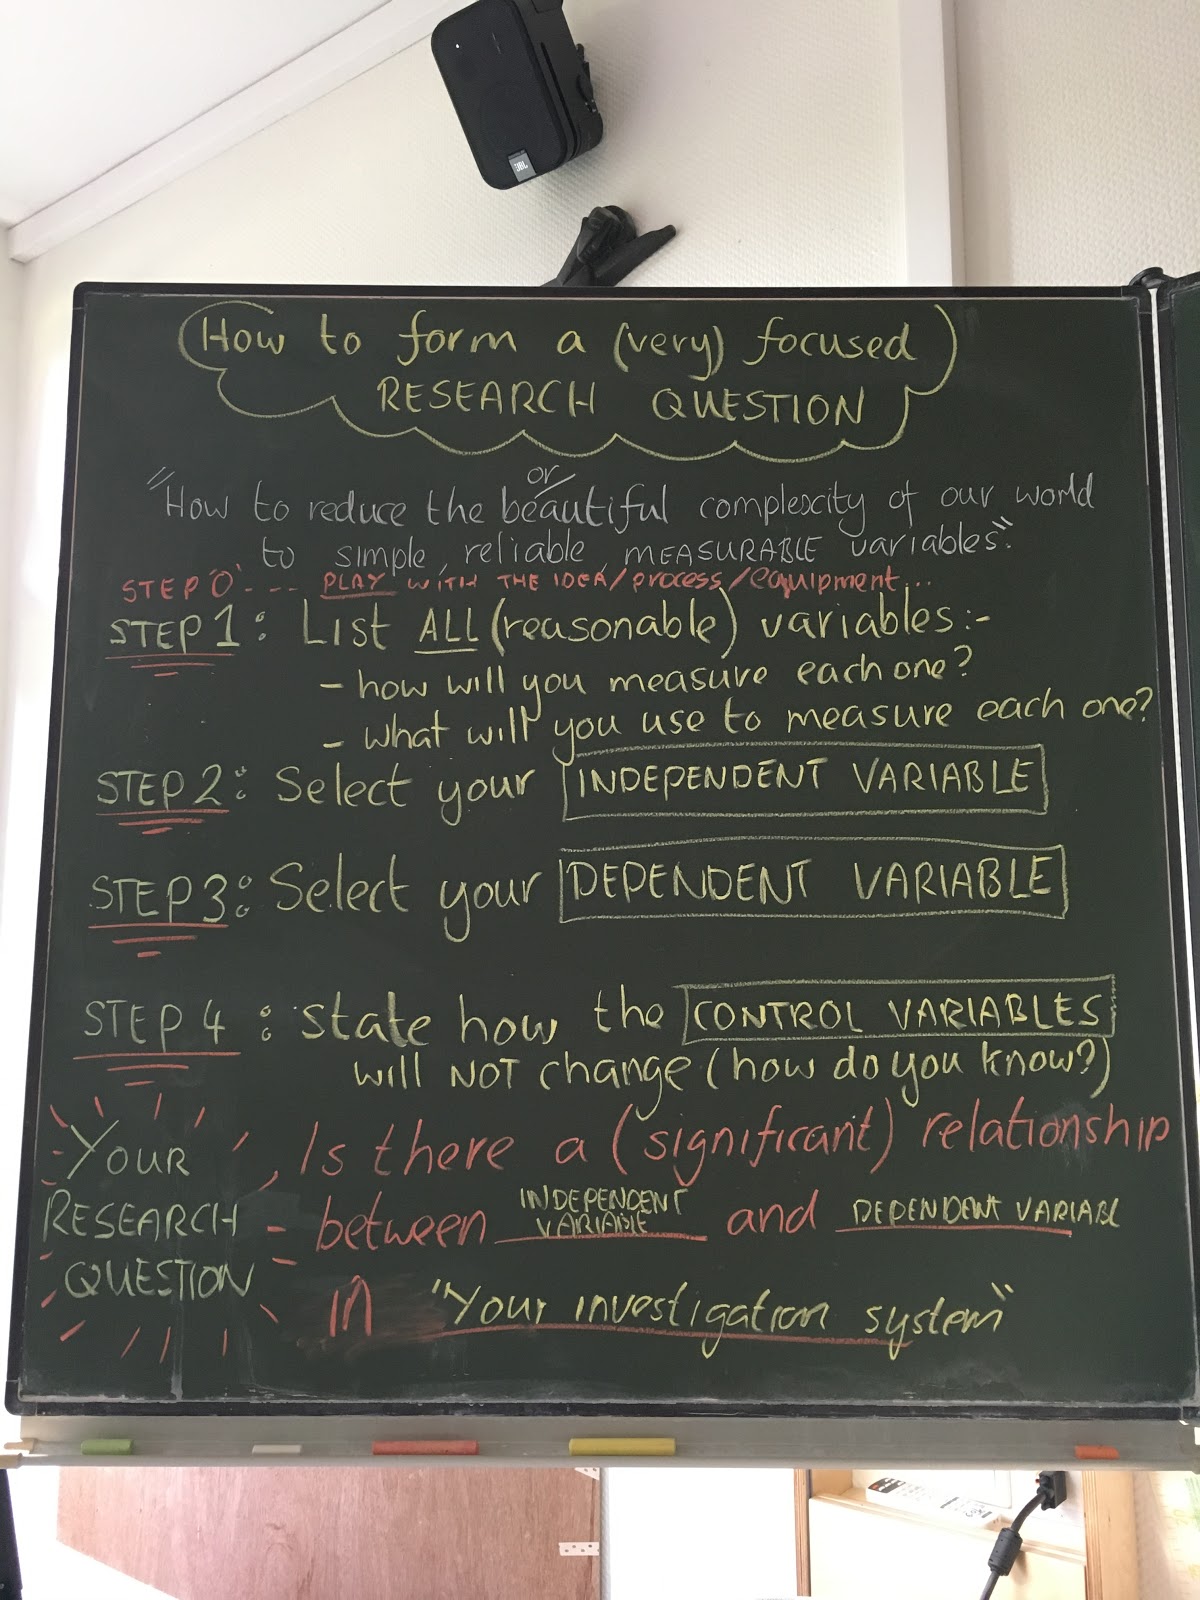 JBL
How to form a (very) focused
RESEARCH QUESTION
or
"How to reduce the beautiful complexcity of our world
to simple, reliable, MEASURABLE variables."
STEP 'O' - - - PLAY WITH THE IDEA/process/equipment...
STEP 1: List ALL (reasonable) variables:-
- how will you measure each one?
- what will you use to measure each one?
STEP 2: Select your INDEPENDENT VARIABLE
STEP 3: Select your DEPENDENT VARIABLE
STEP 4: state how the CONTROL VARIABLES
will NOT change (how do you know?)
YOUR RESEARCH QUESTION -
Is there a (significant) relationship
between INDEPENDENT VARIABLE and DEPENDENT VARIABL
in "Your investigation system"